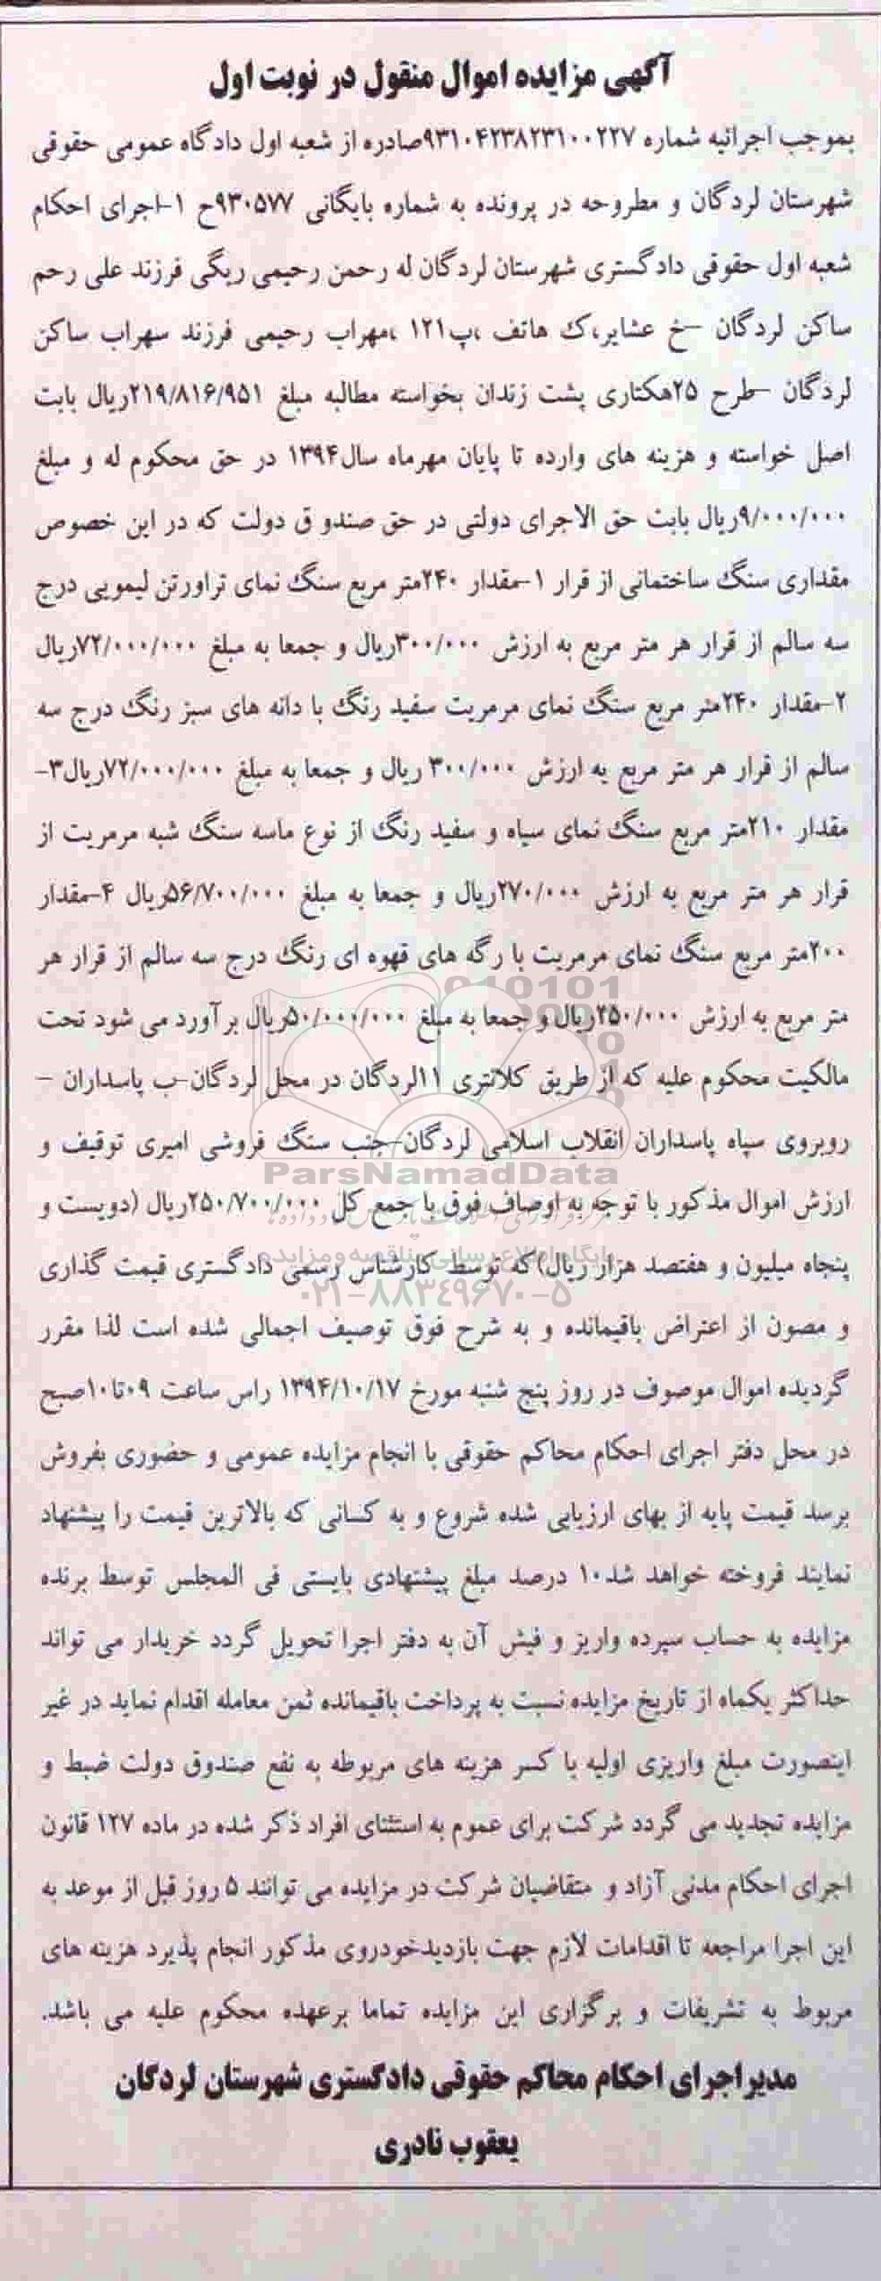 آگهی مزایده اموال منقول در نوبت اول
بموجب اجرائیه شماره ۹۳۱۰۴۲۳۸۲۳۱۰۰۲۲۷صادره از شعبه اول دادگاه عمومی حقوقی
شهرستان لردگان و مطروحه در پرونده به شماره بایگانی ۹۳۰۵۷۷ح ۱-اجرای احکام
شعبه اول حقوقی دادگستری شهرستان لردگان له رحمن رحیمی ریگی فرزند علی رحم
ساکن لردگان –خ عشایر،ک هاتف ،پ۱۲۱ ،مهراب رحیمی فرزند سهراب ساکن
لردگان –طرح ۲۵هکتاری پشت زندان بخواسته مطالبه مبلغ ۲۱۹/۸۱۶/۹۵۱ریال بابت
اصل خواسته و هزینه های وارده تا پایان مهرماه سال۱۳۹۴ در حق محکوم له و مبلغ
۹/۰۰۰/۰۰۰ریال بابت حق الاجرای دولتی در حق صندو ق دولت که در این خصوص
مقداری سنگ ساختمانی از قرار ۱-مقدار ۲۴۰متر مربع سنگ نمای تراورتن لیمویی درج
سه سالم از قرار هر متر مربع به ارزش ۳۰۰/۰۰۰ریال و جمعا به مبلغ ۷۲/۰۰۰/۰۰۰ریال
۲-مقدار ۲۴۰متر مربع سنگ نمای مرمریت سفید رنگ با دانه های سبز رنگ درج سه
سالم از قرار هر متر مربع به ارزش ۳۰۰/۰۰۰ ریال و جمعا به مبلغ ۷۲/۰۰۰/۰۰۰ریال۳-
مقدار ۲۱۰متر مربع سنگ نمای سیاه و سفید رنگ از نوع ماسه سنگ شبه مرمریت از
قرار هر متر مربع به ارزش ۲۷۰/۰۰۰ریال و جمعا به مبلغ ۵۶/۷۰۰/۰۰۰ریال ۴-مقدار
۲۰۰متر مربع سنگ نمای مرمریت با رگه های قهوه ای رنگ درج سه سالم از قرار هر
متر مربع به ارزش ۲۵۰/۰۰۰ریال و جمعا به مبلغ ۵۰/۰۰۰/۰۰۰ریال برآورد می شود تحت
مالکیت محکوم علیه که از طریق کلانتری ۱۱لردگان در محل لردگان-ب پاسداران –
روبروی سپاه پاسداران انقلاب اسلامی لردگان-جنب سنگ فروشی امیری توقیف و
ParsNamadData
ارزش اموال مذکور با توجه به اوصاف فوق با جمع کل ۲۵۰/۷۰۰/۰۰۰ریال (دویست و
پنجاه میلیون و هفتصد هزار ریال)که توسط کارشناس رسمی دادگستری قیمت گذاری
پایگاه اطلاع رسانی مناقصه و مزایده
۰۲۱-۸۸۳۴۹۶۷۰-۵
و مصون از اعتراض باقیمانده و به شرح فوق توصیف اجمالی شده است لذا مقرر
گردیده اموال موصوف در روز پنج شنبه مورخ ۱۳۹۴/۱۰/۱۷ راس ساعت ۰۹تا۱۰صبح
در محل دفتر اجرای احکام محاکم حقوقی با انجام مزایده عمومی و حضوری بفروش
برسد قیمت پایه از بهای ارزیابی شده شروع و به کسانی که بالاترین قیمت را پیشنهاد
نمایند فروخته خواهد شد۱۰ درصد مبلغ پیشنهادی بایستی فی المجلس توسط برنده
مزایده به حساب سپرده واریز و فیش آن به دفتر اجرا تحویل گردد خریدار می تواند
حداکثر یکماه از تاریخ مزایده نسبت به پرداخت باقیمانده ثمن معامله اقدام نماید در غیر
اینصورت مبلغ واریزی اولیه با کسر هزینه های مربوطه به نفع صندوق دولت ضبط و
مزایده تجدید می گردد شرکت برای عموم به استثنای افراد ذکر شده در ماده ۱۲۷ قانون
اجرای احکام مدنی آزاد و متقاضیان شرکت در مزایده می توانند ۵ روز قبل از موعد به
این اجرا مراجعه تا اقدامات لازم جهت بازدیدخودروی مذکور انجام پذیرد هزینه های
مربوط به تشریفات و برگزاری این مزایده تماما برعهده محکوم علیه می باشد.
مدیراجرای احکام محاکم حقوقی دادگستری شهرستان لردگان
یعقوب نادری